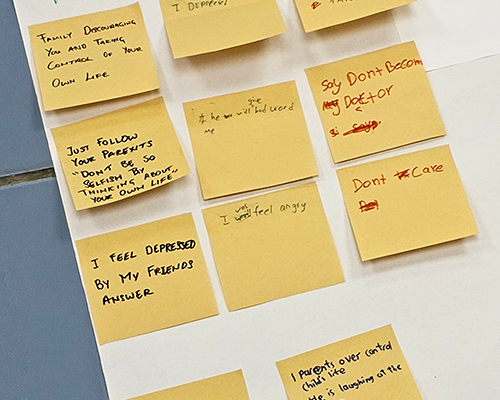 FAMILY DISCOURAGING
YOU AND TAKING
CONTROL OF YOUR
OWN LIFE
I DEPRESSED
JUST FOLLOW
YOUR PARENTS
"DON'T BE SO
SELFISH BY
THINKING ABOUT
YOUR OWN LIFE"
give
If he will bad word
me
Say Dont Becom
Doctor
I FEEL DEPRESSED
BY MY FRIENDS
ANSWER
I will feel angry
Dont Care
1 Parents over control
child's life
He is laughing at the